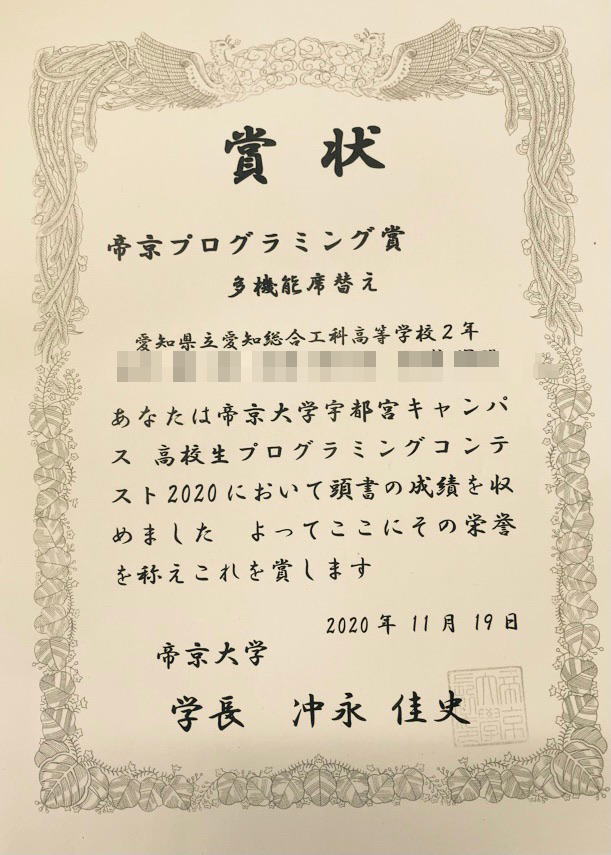 賞状
帝京プログラミング賞
多機能席替え
愛知県立愛知総合工科高等学校2年
あなたは帝京大学宇都宮キャンパ
ス 高校生プログラミングコンテ
スト2020において頭書の成績を収
めました よってここにその栄誉
を称えこれを賞します
2020年 11月 19日
帝京大学
学長 冲永 佳史